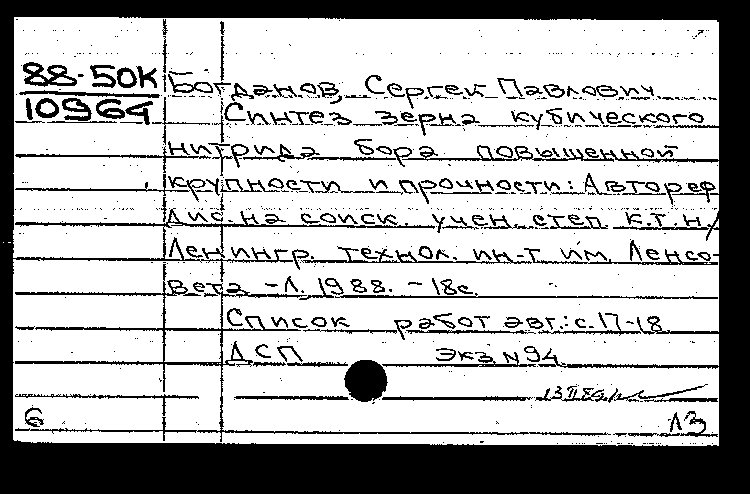 88-50К Богданов, Сергек Павлович
10964 Синтез зерна кубического
нитрида бора повышенной
крупности и прочности: Автореф
дис. на соиск. учен. степ. к.т.н/
Ленингр. технол. ин-т им. Ленсо-
вета - Л. 1988. - 18с.
Список работ авт.: с. 17-18
ДСП Экз N94
6 ЛЗ